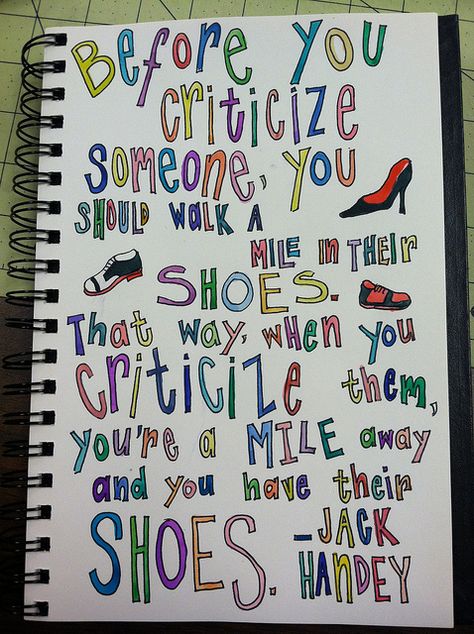 Before you
criticize
someone, you
SHOULD WALK A
MILE IN THEIR
SHOES.
That way, when you
criticize them,
you're a MILE away
and you have their
SHOES. -JACK
HANDEY